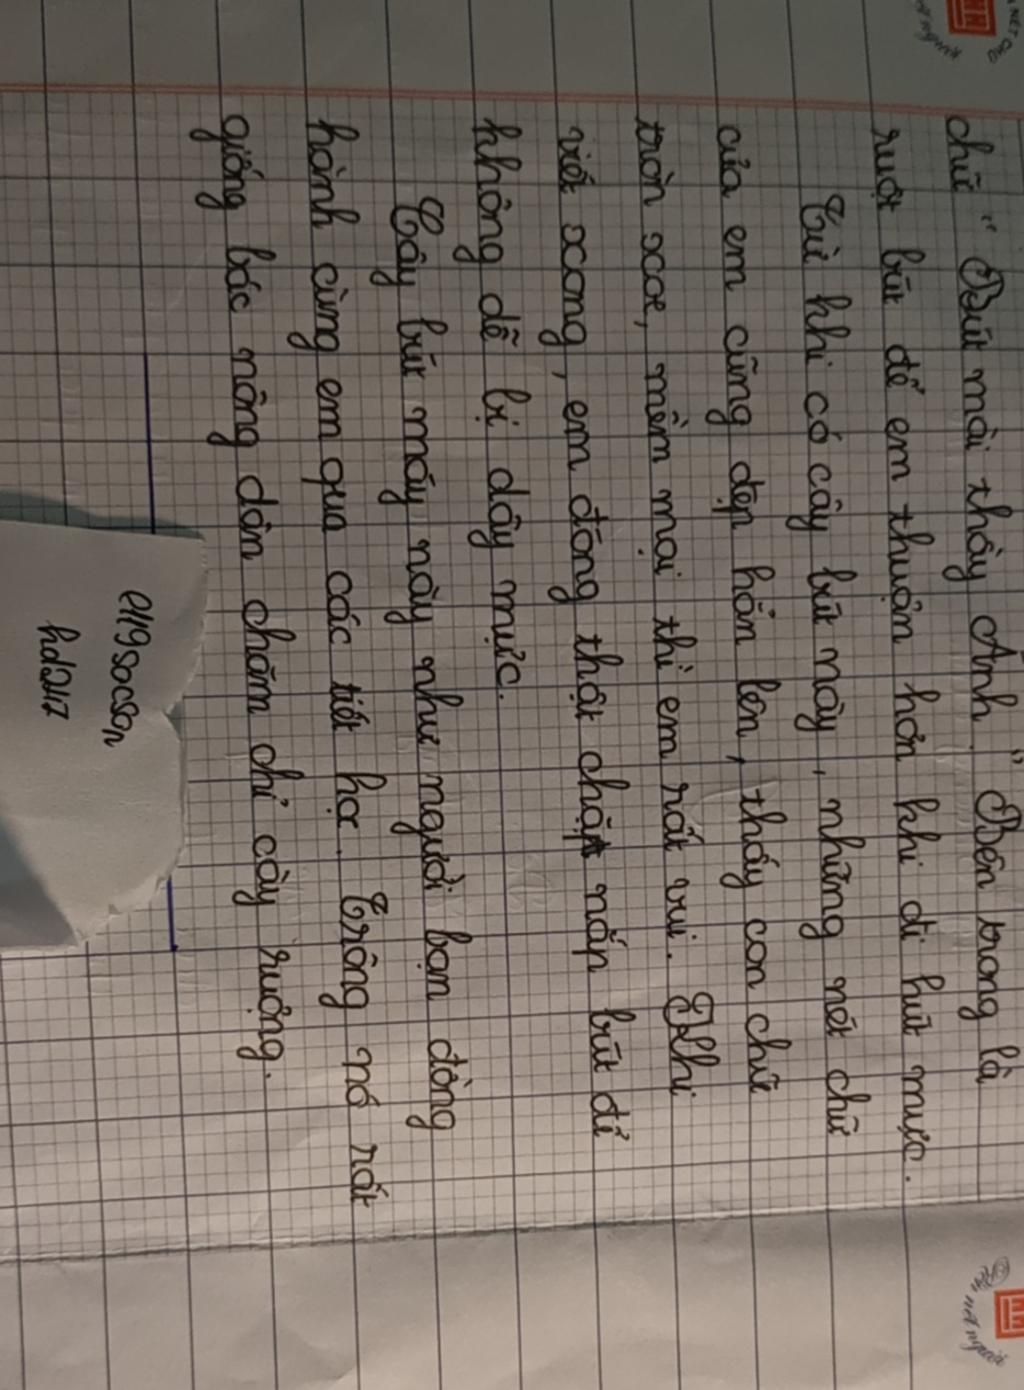 chữ " Bút mài thầy Ánh." Bên trong là
ruột bút để em thuận hơn khi đi hút mực.
Từ khi có cây bút này, những nét chữ
của em cũng đẹp hẳn lên, thấy con chữ
tròn xoe, mềm mại thì em rất vui. Khi
viết xong, em đóng thật chặt nắp bút để
không dễ bị dây mực.
Cây bút máy này như người bạn đồng
hành cùng em qua các tiết học. Trông nó rất
giống bác nông dân chăm chỉ cày ruộng.
e119socson
hd2417
nết người
nết người